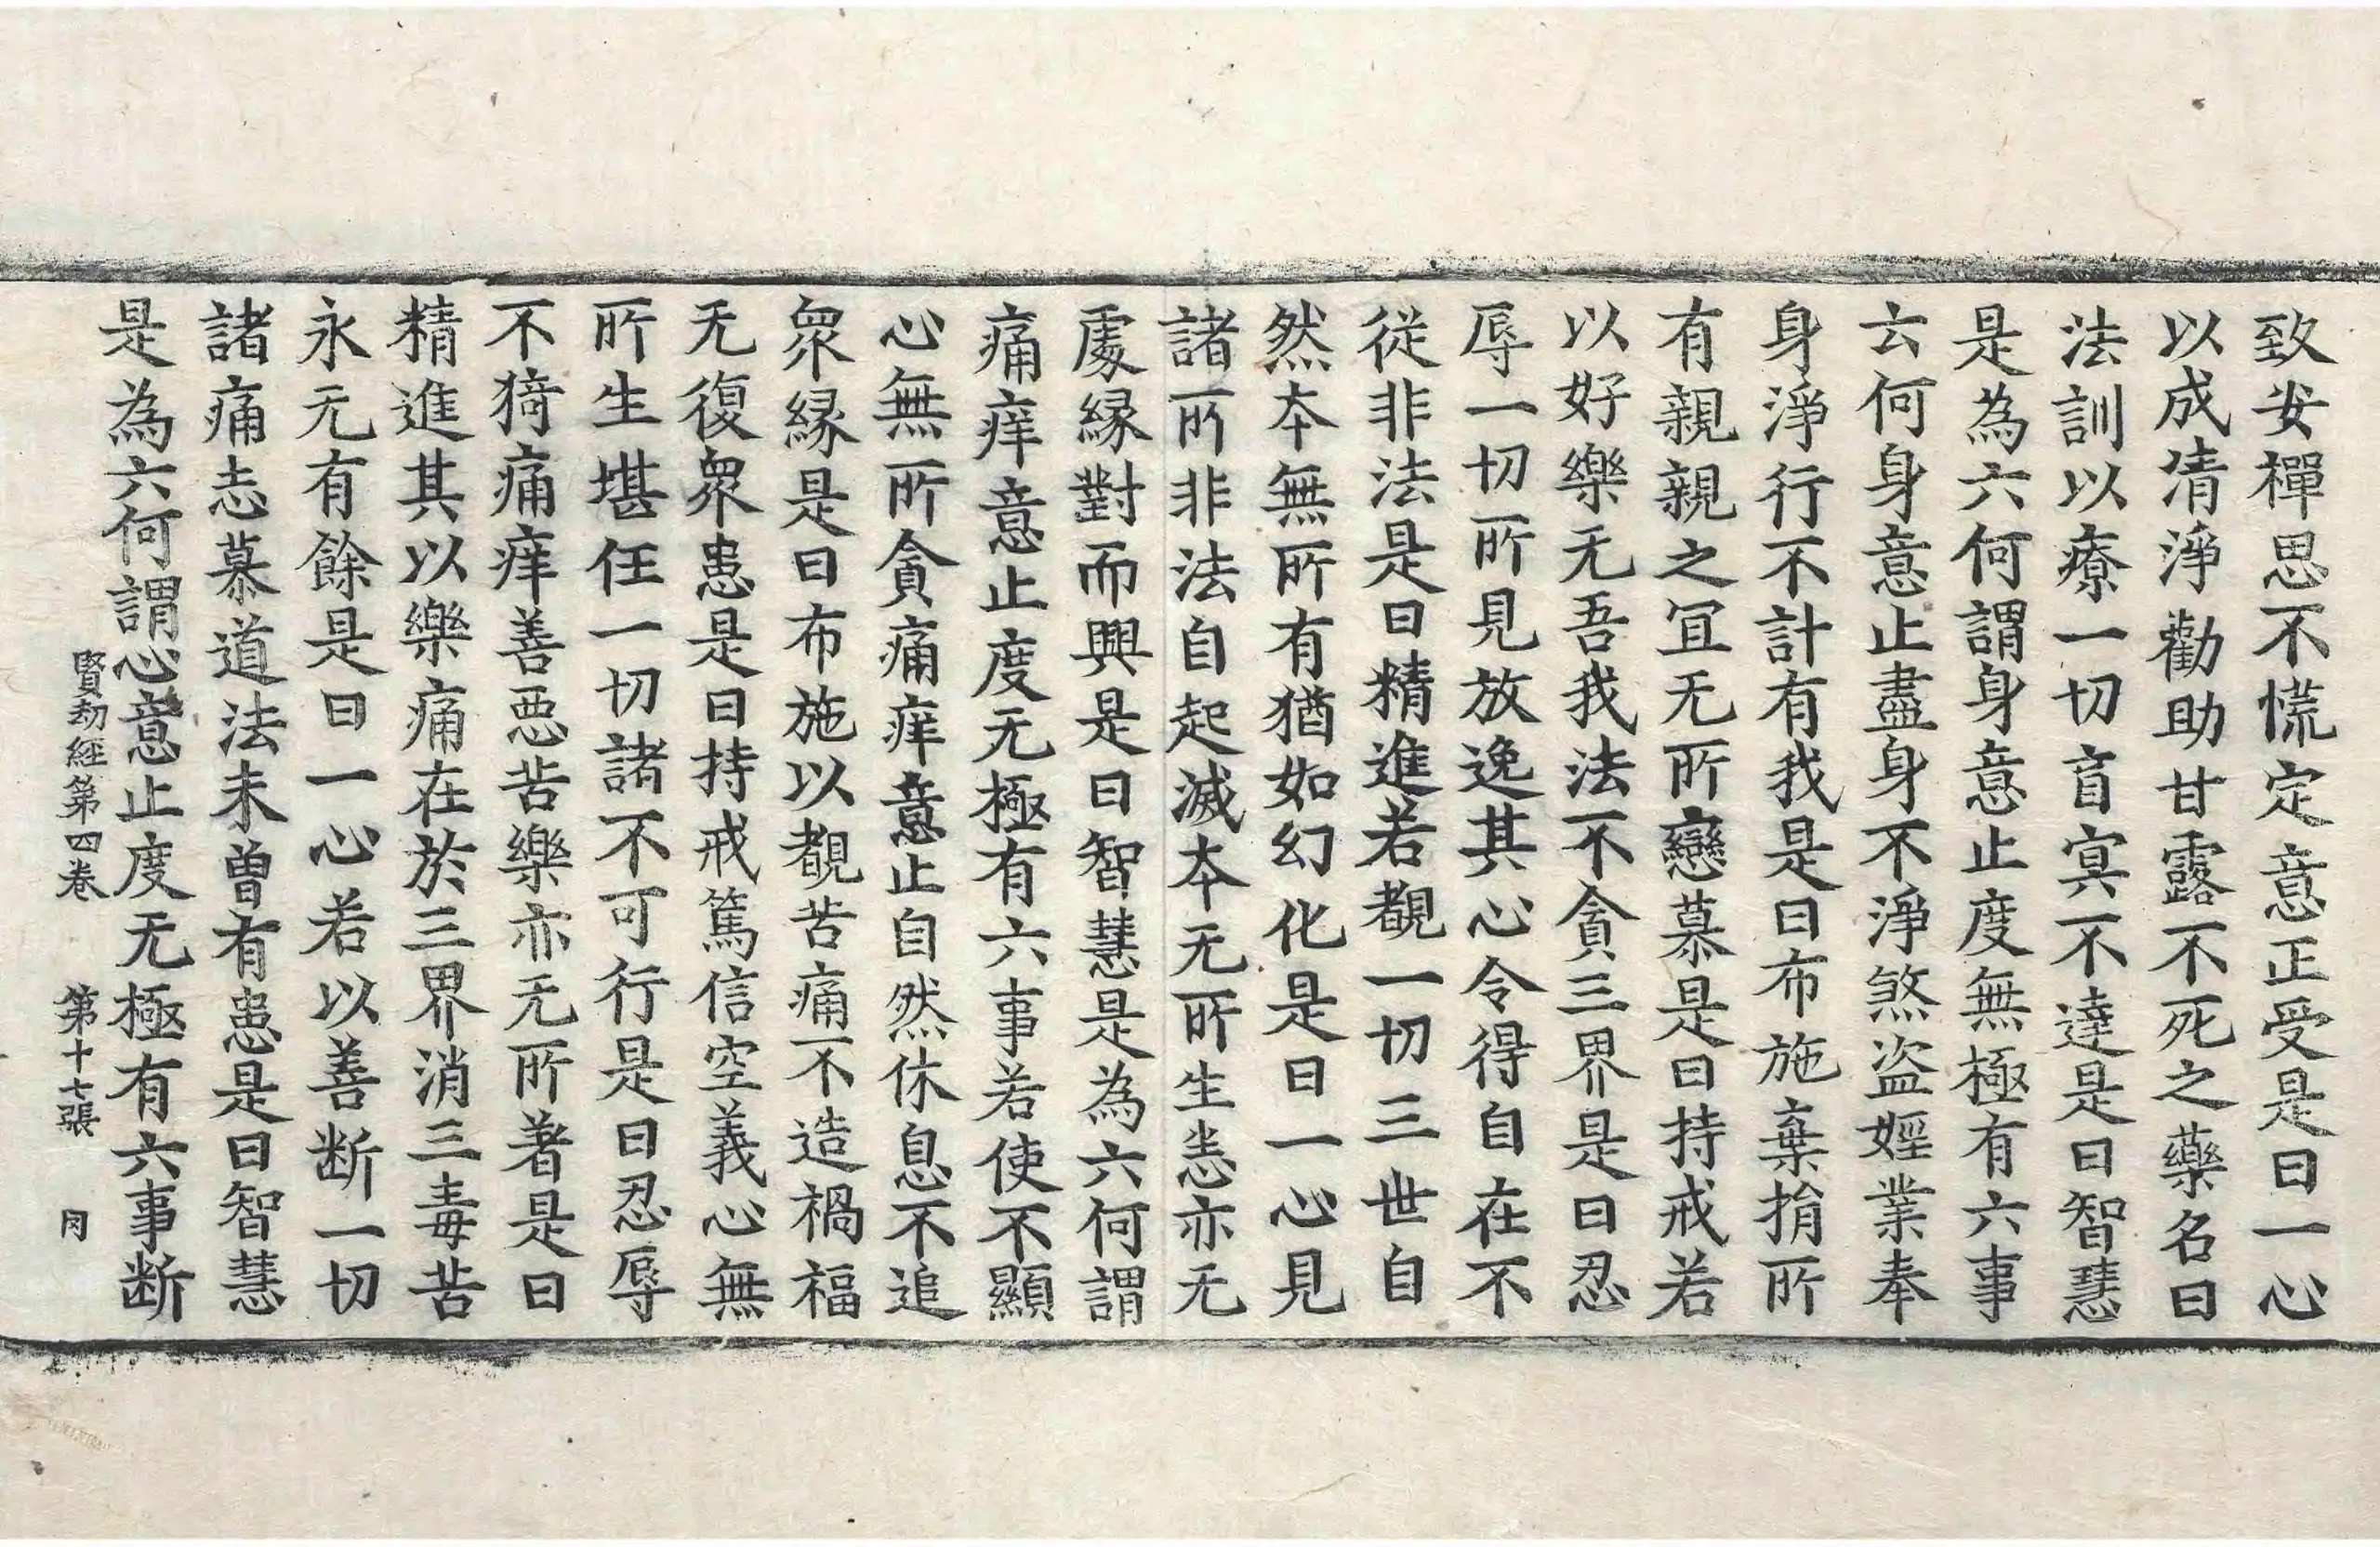 致安禪思不慌定意正受是曰一心
以成清淨勸助甘露不死之藥名曰
法訓以療一切盲冥不達是曰智慧
是為六何謂身意止度無極有六事
云何身意止盡身不淨煞盜婬業奉
身淨行不計有我是曰布施棄捐所
有親親之冝无所戀慕是曰持戒若
以好樂无吾我法不貪三界是曰忍
辱一切所見放逸其心令得自在不
從非法是曰精進若覩一切三世自
然本無所有猶如幻化是曰一心見
諸所非法自起滅本无所生恙亦无
處縁對而興是曰智慧是為六何謂
痛痒意止度无極有六事若使不顯
心無所貪痛痒意止自然休息不追
衆縁是曰布施以覩苦痛不造禍福
无復衆患是曰持戒篤信空義心無
所生堪任一切諸不可行是曰忍辱
不猗痛痒善惡苦樂亦无所著是曰
精進其以樂痛在於三界消三毒苦
永无有餘是曰一心若以善断一切
諸痛志慕道法未曽有患是曰智慧
是為六何謂心意止度无極有六事断
賢劫經第四卷 第十七張 𠕋